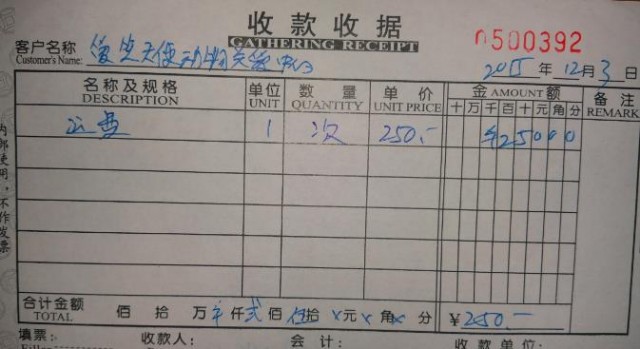 收款收据
GATHERING RECEIPT
0500392
客户名称
Customer's Name:
天使动物关爱中心
2015年12月3日
名称及规格 单位 数量 单价 金 AMOUNT 额 备注
DESCRIPTION UNIT QUANTITY UNIT PRICE 十万千百十元角分 REMARK
1 次 250.- ¥25000
内部使用,不作发票
合计金额 佰拾万仟贰佰伍拾元角分 ¥250.-
TOTAL
填票: 收款人: 会计: 收款单位: